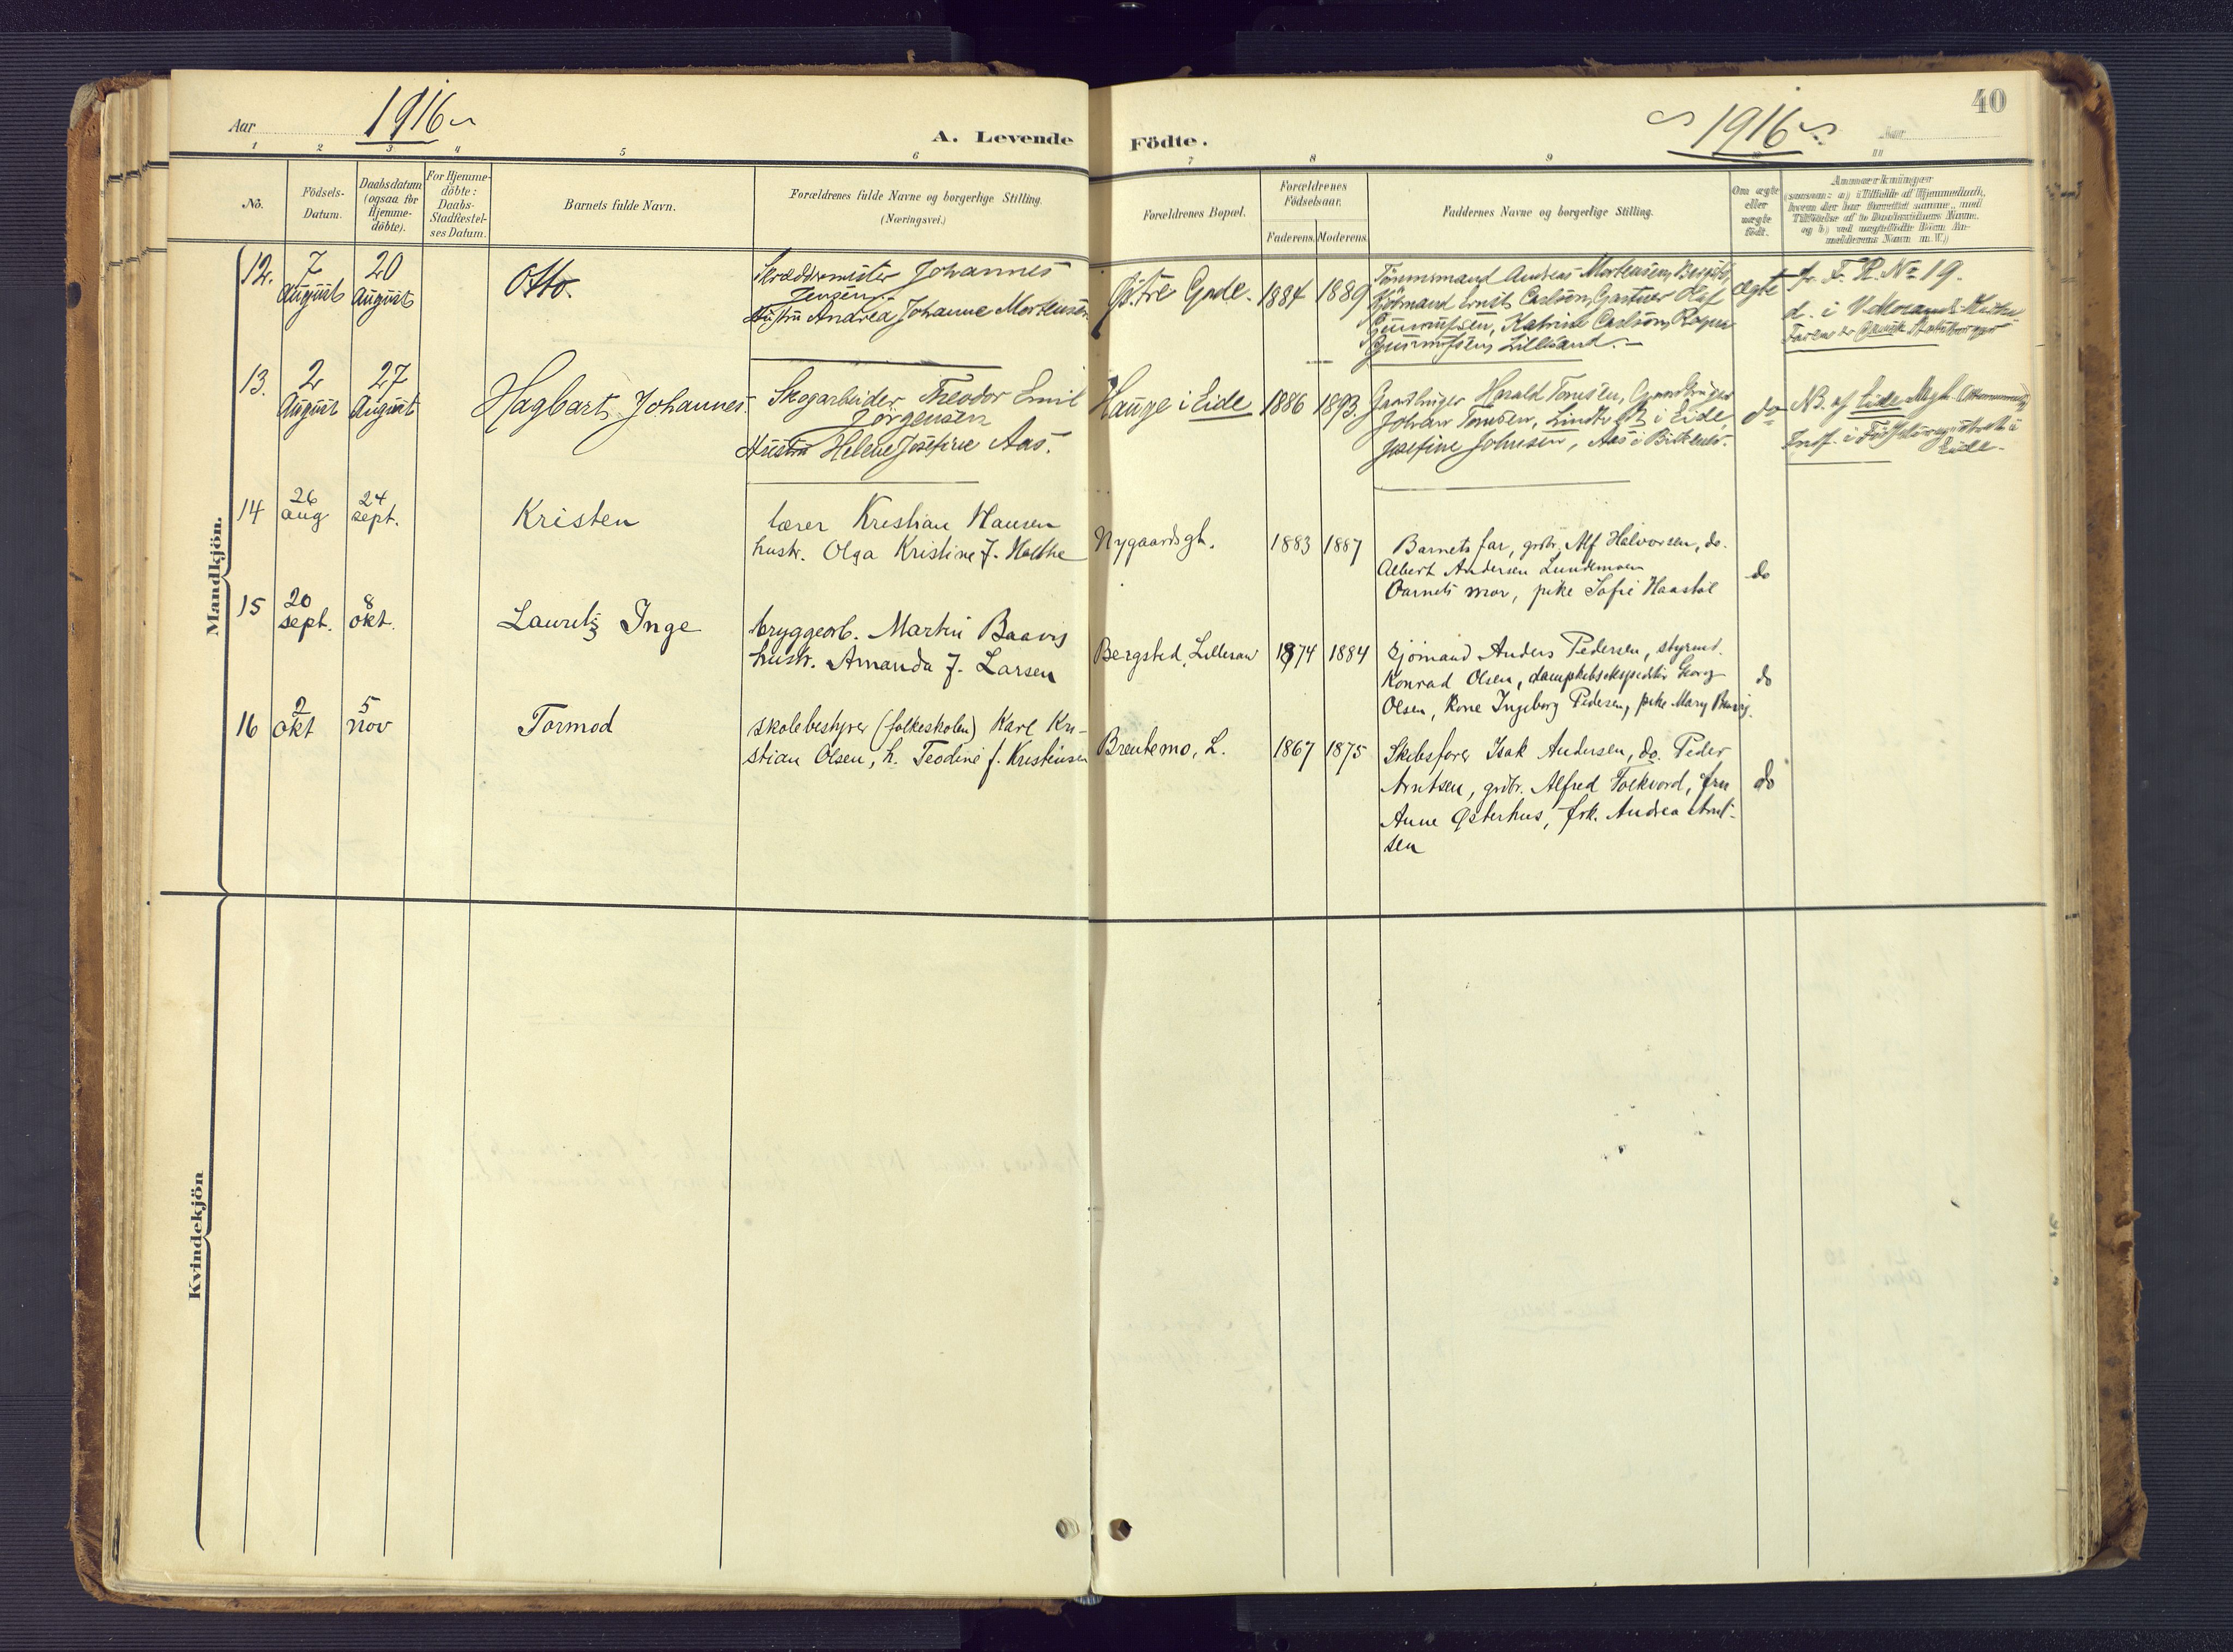 Aar 1916
A. Levende Födte.
1916 Aar
40
1 2 3 4 5 6 7 8 9 11
No.
Födsels-
Datum.
Daabsdatum
(ogsaa for
Hjemme-
döbte).
For Hjemme-
döbte:
Daabs-
Stadfæstel-
ses Datum.
Barnets fulde Navn.
Forældrenes fulde Navne og borgerlige Stilling.
(Næringsvei.)
Forældrenes Bopæl.
Forældrenes
Födselsaar.
Faderens. Moderens.
Faddernes Navne og borgerlige Stilling.
Om ægte
eller
uægte
født.
Anmærkninger
Mandkjön.
12. 7 August 20 August
Otto.
Skræddermester Johannes
Jensen.
Hustru Andrea Johanne Mortensen
Østre Gade. 1884 1889
Tømmermand Andreas Mortensen,
Sjömand Ernst Carlson, Gartner Olaf
Katrine Carlson,
Lillesand.
ægte
F. R. No 19.
d. i
13. 2 August 27 August
Hagbart Johannes.
Skogarbeider Theodor Emil
Jörgensen
Hustru Helene Josefine Aas.
Hauge i Eide 1886 1893.
Gaardbruger Harald Tomsen, Gaardbruger
Johan Tomsen, i Eide,
Josefine Johnsen, Aas i
do
NB. af Eide
Indf. i Födselsregisteret i
Eide.
14 26 aug 24 sept.
Kristen
lærer Kristian Hansen
hustr. Olga Kristine f. Holthe
Nygaardsgt. 1883 1887
Barnets far, grdbr. Alf Halvorsen, do.
Albert Andersen Lundemoen
Barnets mor, pike Sofie Haastöl
do
15 20 sept. 8 okt.
Lauritz Inge
bryggearb. Martin Baavig
hustr. Amanda f. Larsen
Bergsted, Lillesand 1874 1884
sjömand Anders Pedersen, styrmd.
Konrad Olsen, dampskibsekspeditör Georg
Olsen, Kone Ingeborg Pedersen, pike Mary
do
16 2 okt 5 nov
Tormod
skolebestyrer (folkeskolen) Karl Kri-
stian Olsen, h. Teodine f. Kristensen
Brentemo, L. 1867 1875
Skibsförer Isak Andersen, do. Peder
Arntsen, grdbr. Alfred Folkvord, fru
Anne Østerhus, frk. Andrea Arnt-
sen
do
Kvindekjön